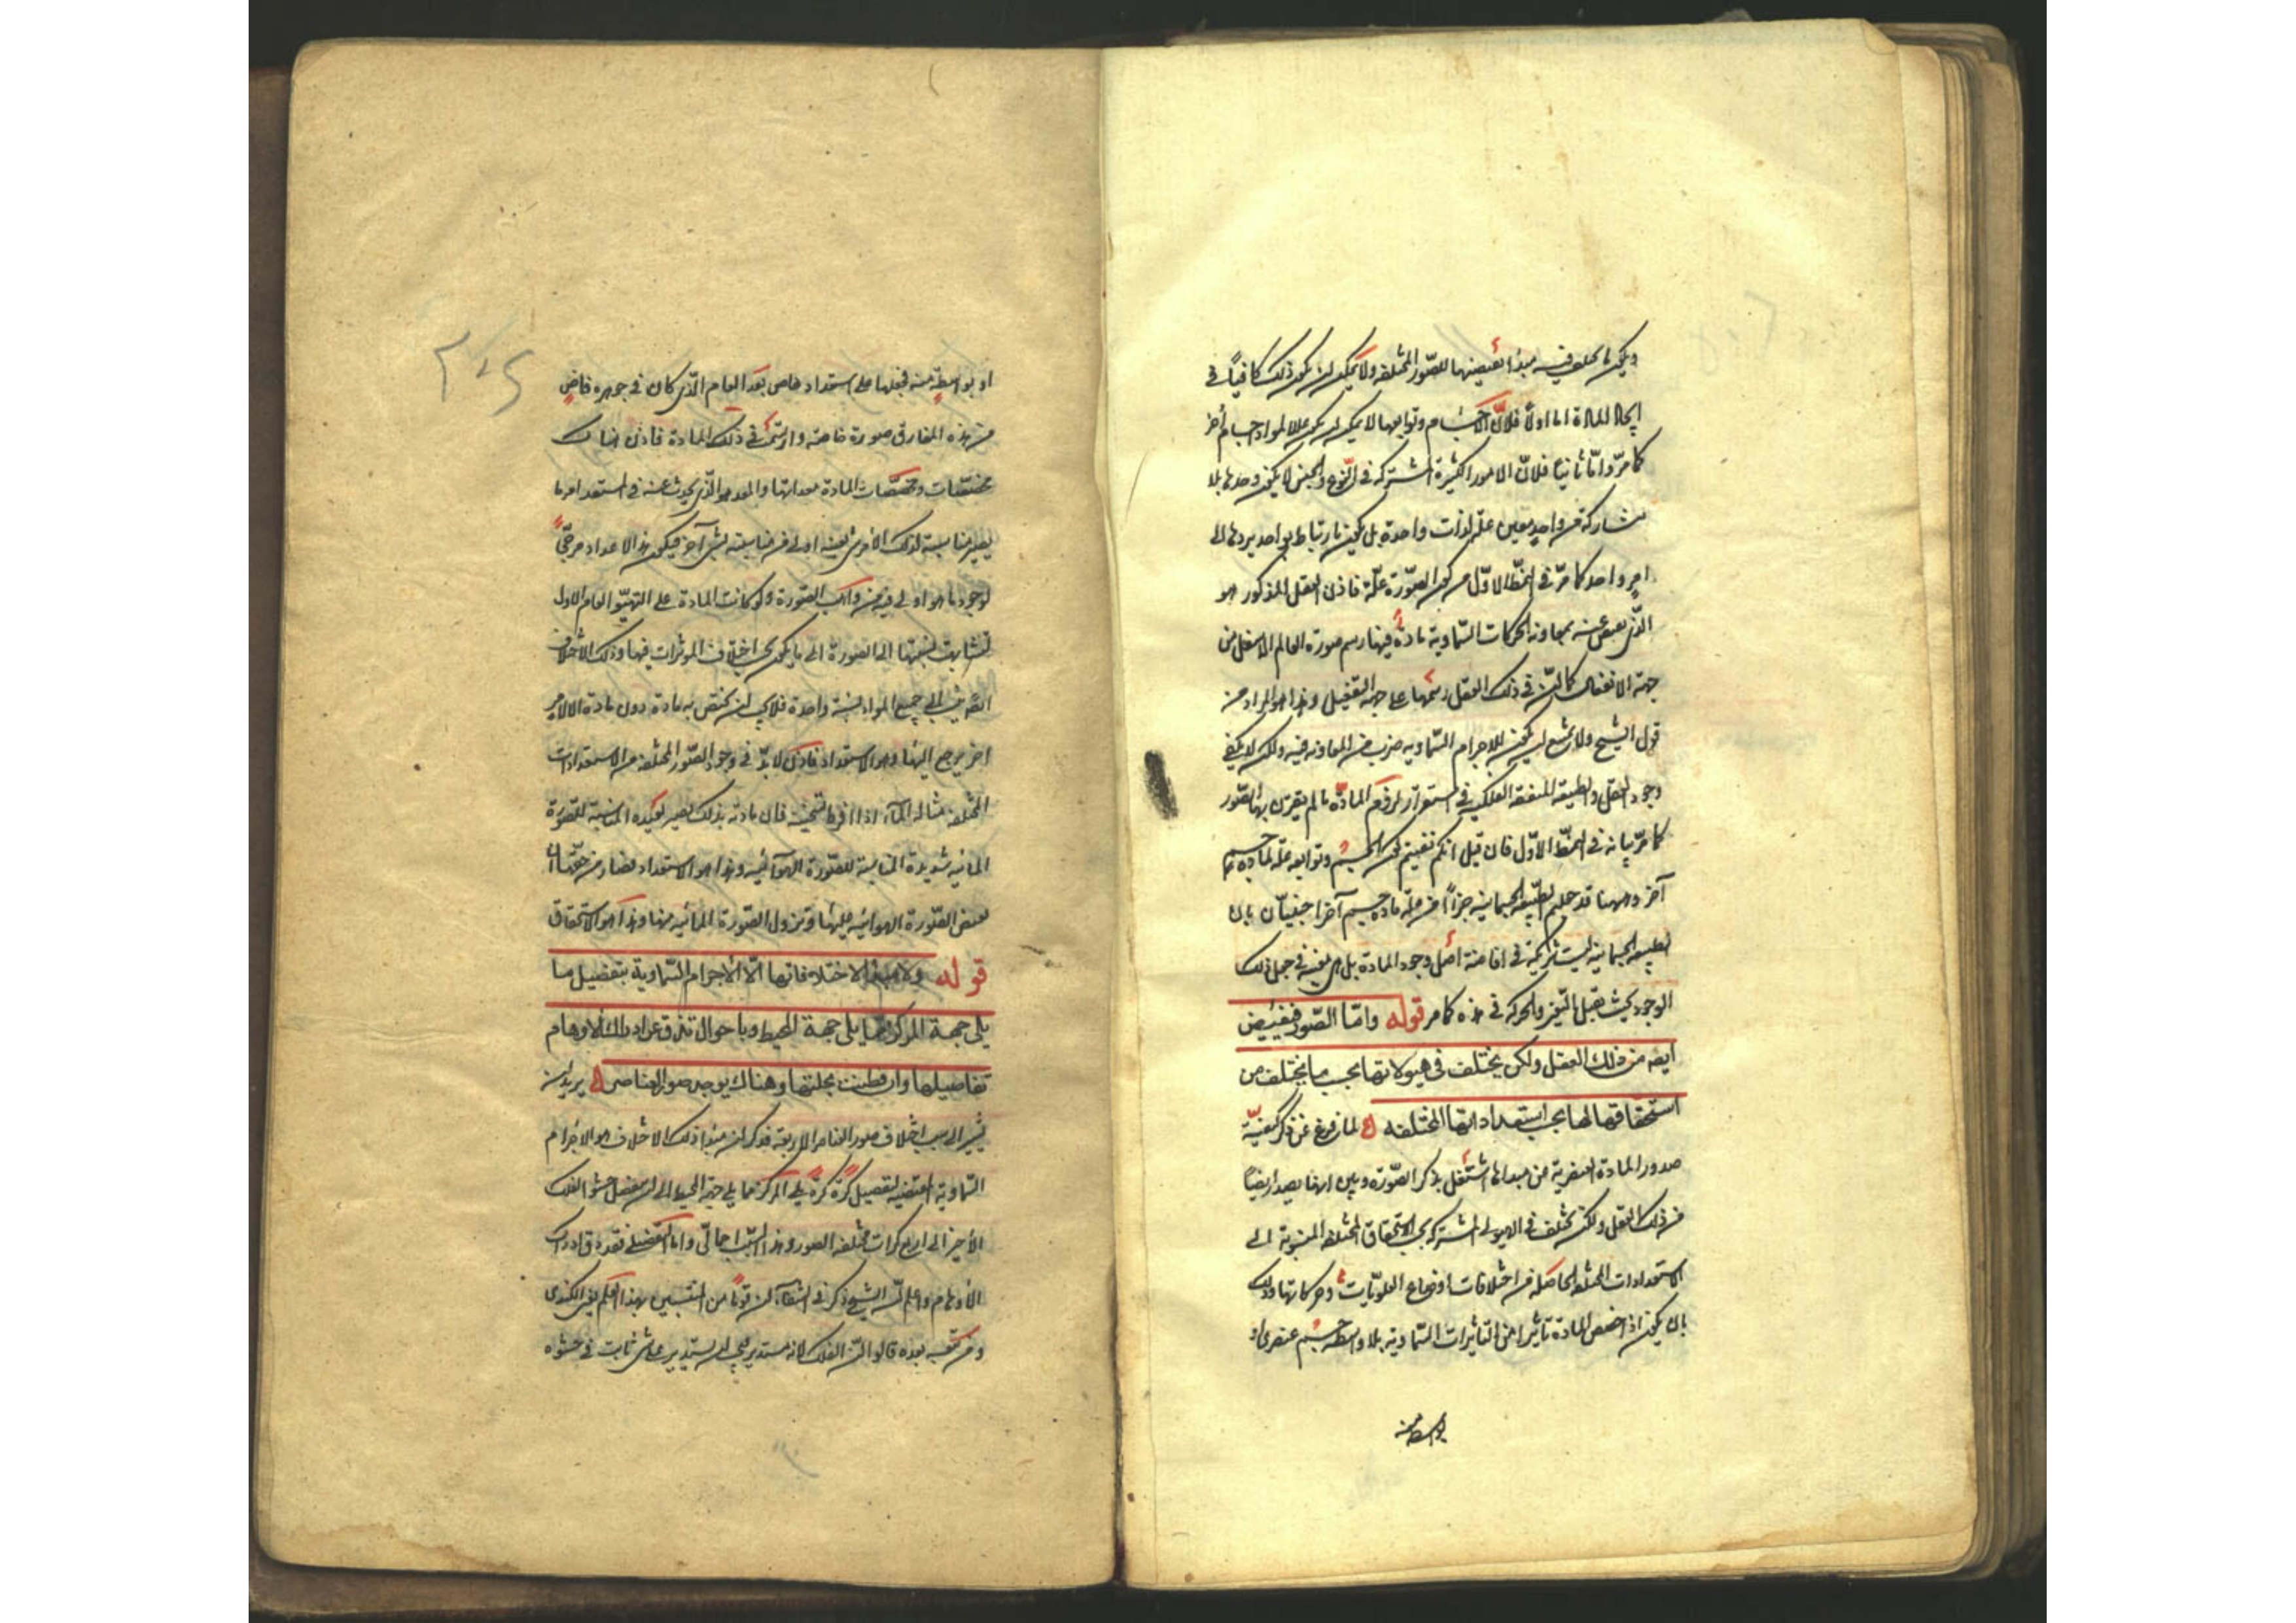 ويكون ما يختلف فيه مبدأ لتهيئها للصّور المختلفة ولا يمكن ان يكون ذلك كافياً في
ايجاد المادة اما اولاً فلانّ الاجسام وتوابعها لا يمكن ان يكون عللا لمواد اجسام أخر
كما مرّ وامّا ثانياً فلانّ الامور الكثيرة المشتركة في النّوع والجنس لا يكون وحدها بلا
مشاركة من واحد معين علّة لذات واحدة بل يكون بارتباط بواحد يردها الى
امر واحد كما مرّ في النمط الاوّل من كون الصّورة علّة فاذن العقل المذكور هو
الّذي يفيض عنه بمعاونة الحركات السّماوية مادّة فيها رسم صورة العالم الاسفل من
جهة الانفعال كما انّ في ذلك العقل رسمها على جهة التفعيل وهذا هو المراد من
قول الشيخ ولا يمتنع ان يكون للاجرام السّماوية ضرب من المعاونة فيه ولكن لا يكفي
وجود العقل والطبيعة المتفقة الفلكية في استقرار لزوم المادّة ما لم يقترن بها الصّور
كما مرّ بيانه في النمط الاوّل فان قيل انكم نفيتم كون الجسم وتوابعه علّة لمادة جسم
آخر وههنا قد جعلتم الطّبيعة الجسمانية جزءاً من علّة مادة جسم آخر اجيبَ بان
الطبيعة الجسمانية ليست شريكة في افاضة اصل وجود المادة بل هي معينة في جعل ذلك
الوجود بحيث يقبل التّغيّر والحركة في هذه كما مر قوله وامّا الصّور فتفيض
ايضه من ذلك العقل ولكن يختلف في هيولاتها بحسب ما يختلف من
استحقاقها لها بحسب استعداداتها المختلفه لما فرغ عن ذكر كيفيّة
صدور المادة العنصرية من مبدأها اشتغل بذكر الصّورة وبيّن انها يصدر ايضاً
من ذلك العقل ولكن تختلف في الهيولى المشتركة بحسب الاستحقاق المختلفة المنسوبة الى
الاستعدادات المختلفة الحاصلة من اختلافات اوضاع العلويّات وحركاتها وذلك
بان يكون اذا خصص المادة تأثير من التاثيرات السّماوية بلا واسطة جسم عنصري او
بواسطة منه
او بواسطة منه فجعلها على استعداد خاص بعد العام الّذي كان في جوهره فاض
من هذه المفارق صورة خاصة وارتسمت في ذلك المادة فاذن هناك
مخصّصات ومخصّصات المادة معداتها والمعد هو الّذي يحدث عنه في المستعد امر ما
يصير مناسبته لذلك الامر لشيء بعينه اولى من مناسبته لشيء آخر فيكون هذا الاعداد مرجّحاً
لوجود ما هو اولى فيه من واهب الصّورة ولو كانت المادة على التهيّؤ العام الاول
تشابهت نسبتها الى الصورة الى ما يكون بحسب اختلاف الموثرات فيها وذلك الاختلاف
ايضه نسبة الى جميع المواد نسبة واحدة فلا يجب ان يختص به مادة دون مادة الا لامر
اخر يرجع اليها وهو الاستعداد فاذن لا بدّ في وجود الصّور المختلفة من الاستعدادات
المختلفة مثاله الماء اذا افرط تسخينه فان مادته بذلك يصير بعيدة المناسبة للصّورة
المائيه شديدة المناسبة للصّورة الهوائيه وهذا هو الاستعداد فصار من حقّها ان
تفيض الصّورة الهوائيه عليها وتزول الصّورة المائيه عنها وهذا هو الاستحقاق
قوله ولا مبدأ لاختلافاتها الّا الاجرام السّماوية بتفصيل ما
يلي جهة المركز ممّا يلي جهة المحيط وباحوال تدق عن ادراك الاوهام
تفاصيلها وان فطنت بجلتها وهناك يوجد صور العناصر يريد ان
يشير الى سبب اختلاف صور العناصر الاربعة فذكر ان مبدأ ذلك الاختلاف هو الاجرام
السّماوية المقتضية لتفصيل كرة كرة يلي المركز مما يلي جهة المحيط الى ان ينفصل حشو الفلك
الأخير الى اربع كرات مختلفة الصور وهذا السبب اجمالي واما التفصيلي فقد دق ادراك
الأوهام واعلم انّ الشيخ ذكر في الشفاء ان قوماً من المنتسبين بهذا العلم يعني الكندي
ومن تبعه بعده قالوا انّ الفلك لانه مستدير يجب ان يستدير على شيء ثابت في حشوه